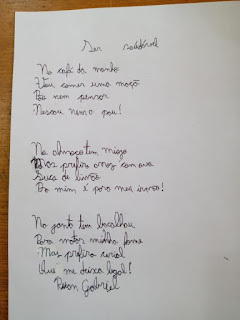 Ser saudável
No café da manhã
Vou comer uma maçã
Pão nem pensar
Nescau nem a pau!
No almoço tem
Mas prefiro arroz com ovo
Suco de limão
Do mim é para meu irmão!
No janta tem bacalhau
Para matar minha fome
Mas prefiro cereal
Que me deixa legal!
Gabriel